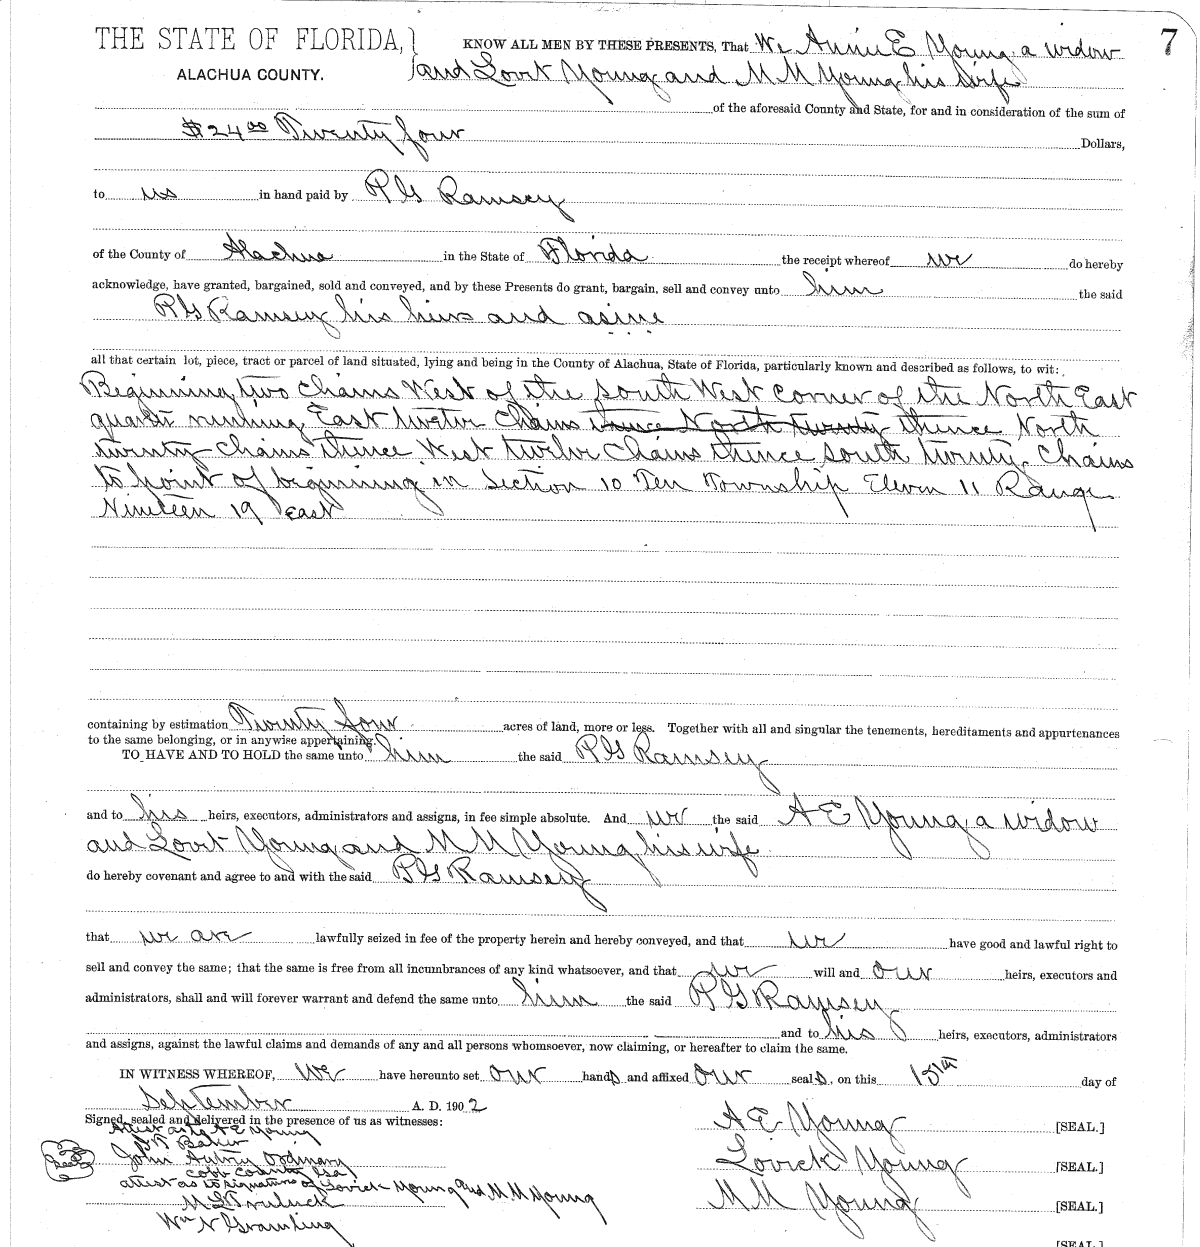 7
THE STATE OF FLORIDA,} KNOW ALL MEN BY THESE PRESENTS, That We Annie E Young a widow
ALACHUA COUNTY. and Lovit Young and M M Young his wife
of the aforesaid County and State, for and in consideration of the sum of
$24.00 Twenty four Dollars,
to us in hand paid by R G Ramsey
of the County of Alachua in the State of Florida the receipt whereof we do hereby
acknowledge, have granted, bargained, sold and conveyed, and by these Presents do grant, bargain, sell and convey unto him the said
R G Ramsey his heirs and asine
all that certain lot, piece, tract or parcel of land situated, lying and being in the County of Alachua, State of Florida, particularly known and described as follows, to wit:
Beginning two chains West of the South West Corner of the North East
quarter running East twelve Chains thence North twenty thence North
twenty Chains thence West twelve Chains thence south twenty Chains
to point of beginning in Section 10 Ten Township Eleven 11 Range
Nineteen 19 East
containing by estimation Twenty four acres of land, more or less. Together with all and singular the tenements, hereditaments and appurtenances
to the same belonging, or in anywise appertaining.
TO HAVE AND TO HOLD the same unto him the said R G Ramsey
and to his heirs, executors, administrators and assigns, in fee simple absolute. And we the said A E Young a widow
and Lovit Young and M M Young his wife
do hereby covenant and agree to and with the said R G Ramsey
that we are lawfully seized in fee of the property herein and hereby conveyed, and that we have good and lawful right to
sell and convey the same; that the same is free from all incumbrances of any kind whatsoever, and that we will and our heirs, executors and
administrators, shall and will forever warrant and defend the same unto him the said R G Ramsey
and to his heirs, executors, administrators
and assigns, against the lawful claims and demands of any and all persons whomsoever, now claiming, or hereafter to claim the same.
IN WITNESS WHEREOF, We have hereunto set our hands and affixed our seals, on this 15th day of
September A. D. 1902
Signed, sealed and delivered in the presence of us as witnesses: A E Young [SEAL.]
Attest as to A E Young
Baker
John Autry Ordinary Lovick Young [SEAL.]
Cobb County Ga
attest as to signature of Lovick Young and M M Young
M L Truluck M M Young [SEAL.]
Wm N Gramling
[SEAL.]